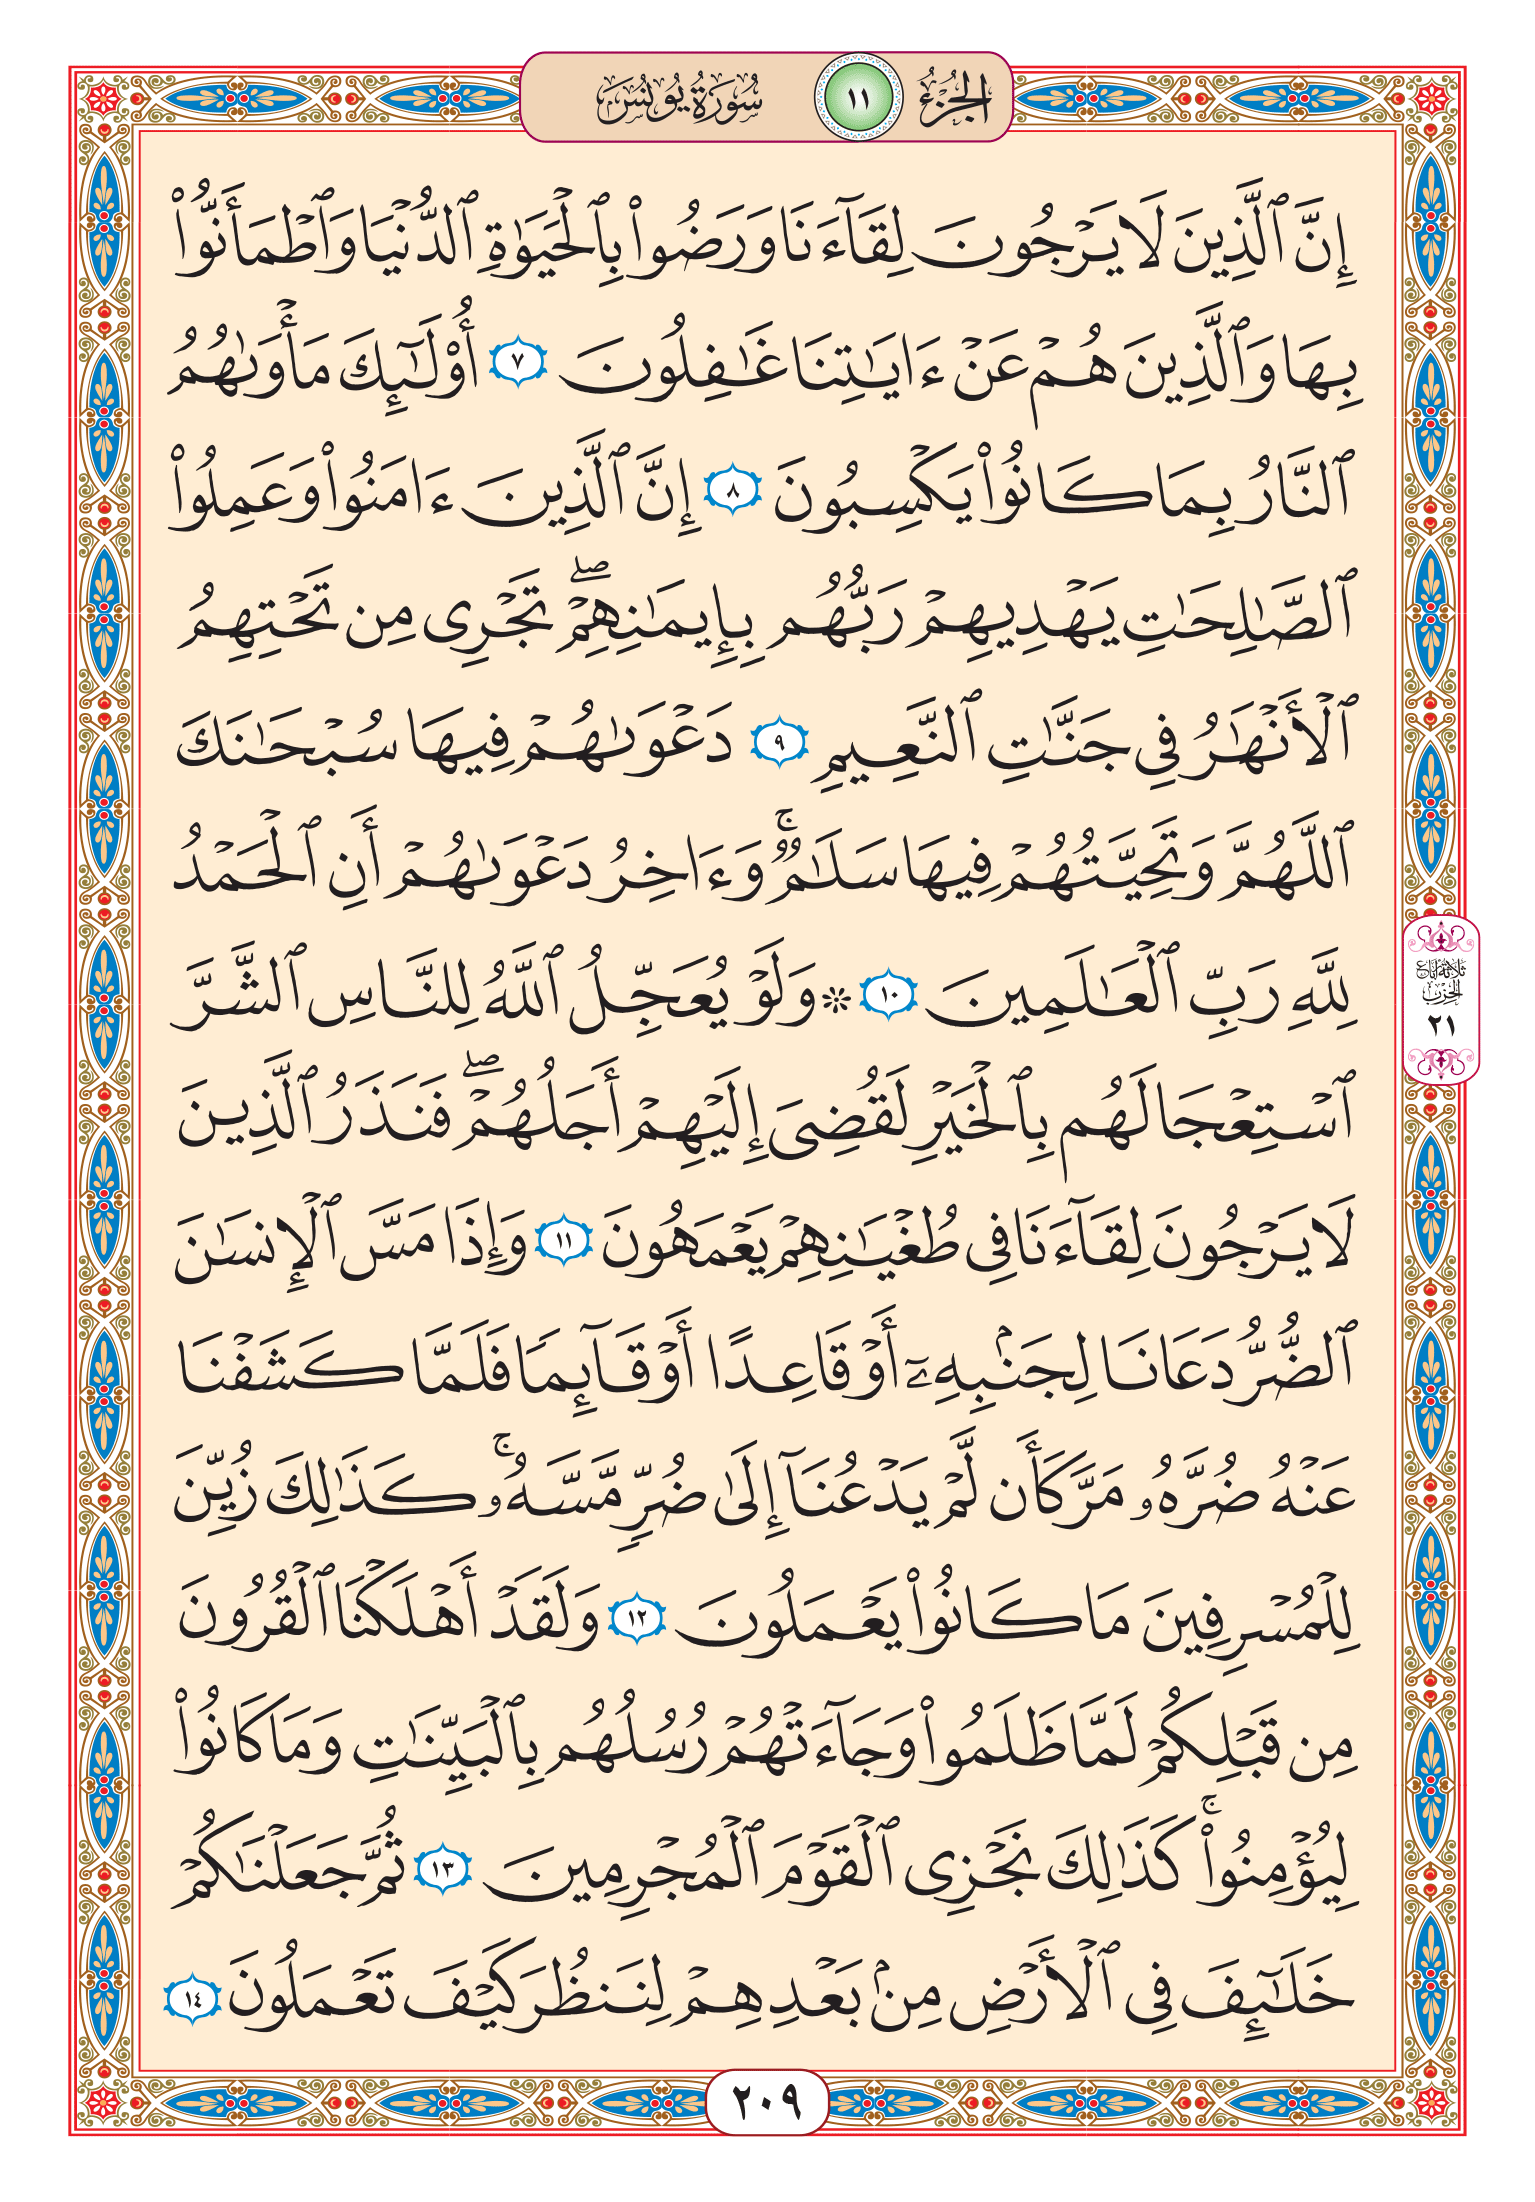 الجزء ١١ سورة يونس
إِنَّ ٱلَّذِينَ لَا يَرۡجُونَ لِقَآءَنَا وَرَضُوا۟ بِٱلۡحَيَوٰةِ ٱلدُّنۡيَا وَٱطۡمَأَنُّوا۟
بِهَا وَٱلَّذِينَ هُمۡ عَنۡ ءَايَٰتِنَا غَٰفِلُونَ ٧ أُو۟لَٰٓئِكَ مَأۡوَىٰهُمُ
ٱلنَّارُ بِمَا كَانُوا۟ يَكۡسِبُونَ ٨ إِنَّ ٱلَّذِينَ ءَامَنُوا۟ وَعَمِلُوا۟
ٱلصَّٰلِحَٰتِ يَهۡدِيهِمۡ رَبُّهُم بِإِيمَٰنِهِمۡۖ تَجۡرِى مِن تَحۡتِهِمُ
ٱلۡأَنۡهَٰرُ فِى جَنَّٰتِ ٱلنَّعِيمِ ٩ دَعۡوَىٰهُمۡ فِيهَا سُبۡحَٰنَكَ
ٱللَّهُمَّ وَتَحِيَّتُهُمۡ فِيهَا سَلَٰمٌۚ وَءَاخِرُ دَعۡوَىٰهُمۡ أَنِ ٱلۡحَمۡدُ
لِلَّهِ رَبِّ ٱلۡعَٰلَمِينَ ١٠ ۞ وَلَوۡ يُعَجِّلُ ٱللَّهُ لِلنَّاسِ ٱلشَّرَّ
ٱسۡتِعۡجَالَهُم بِٱلۡخَيۡرِ لَقُضِىَ إِلَيۡهِمۡ أَجَلُهُمۡۖ فَنَذَرُ ٱلَّذِينَ
لَا يَرۡجُونَ لِقَآءَنَا فِى طُغۡيَٰنِهِمۡ يَعۡمَهُونَ ١١ وَإِذَا مَسَّ ٱلۡإِنسَٰنَ
ٱلضُّرُّ دَعَانَا لِجَنۢبِهِۦٓ أَوۡ قَاعِدًا أَوۡ قَآئِمًا فَلَمَّا كَشَفۡنَا
عَنۡهُ ضُرَّهُۥ مَرَّ كَأَن لَّمۡ يَدۡعُنَآ إِلَىٰ ضُرٍّ مَّسَّهُۥۚ كَذَٰلِكَ زُيِّنَ
لِلۡمُسۡرِفِينَ مَا كَانُوا۟ يَعۡمَلُونَ ١٢ وَلَقَدۡ أَهۡلَكۡنَا ٱلۡقُرُونَ
مِن قَبۡلِكُمۡ لَمَّا ظَلَمُوا۟ وَجَآءَتۡهُمۡ رُسُلُهُم بِٱلۡبَيِّنَٰتِ وَمَا كَانُوا۟
لِيُؤۡمِنُوا۟ۚ كَذَٰلِكَ نَجۡزِى ٱلۡقَوۡمَ ٱلۡمُجۡرِمِينَ ١٣ ثُمَّ جَعَلۡنَٰكُمۡ
خَلَٰٓئِفَ فِى ٱلۡأَرۡضِ مِنۢ بَعۡدِهِمۡ لِنَنظُرَ كَيۡفَ تَعۡمَلُونَ ١٤
ثلاثة أرباع
الحزب
٢١
٢٠٩